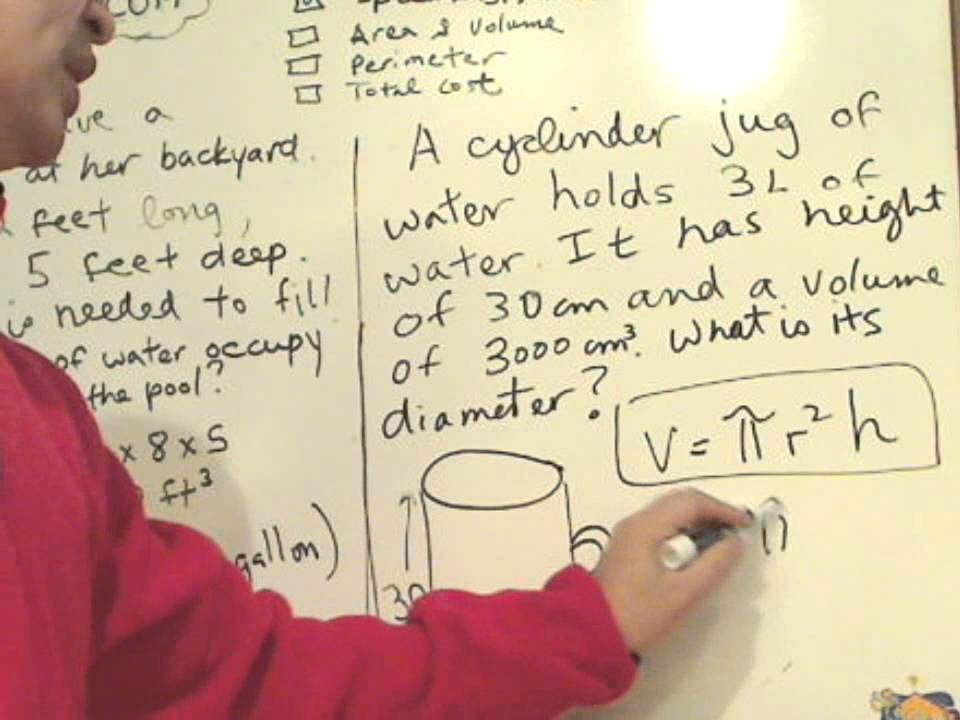 Area & Volume
Perimeter
Total Cost
a
at her backyard.
feet long,
5 feet deep.
is needed to fill
of water occupy
the pool?
x 8 x 5
ft³
gallon)
A cyclinder jug of
water holds 3L of
water. It has height
of 30cm and a volume
of 3000 cm³. What is its
diameter?
V = πr²h
30